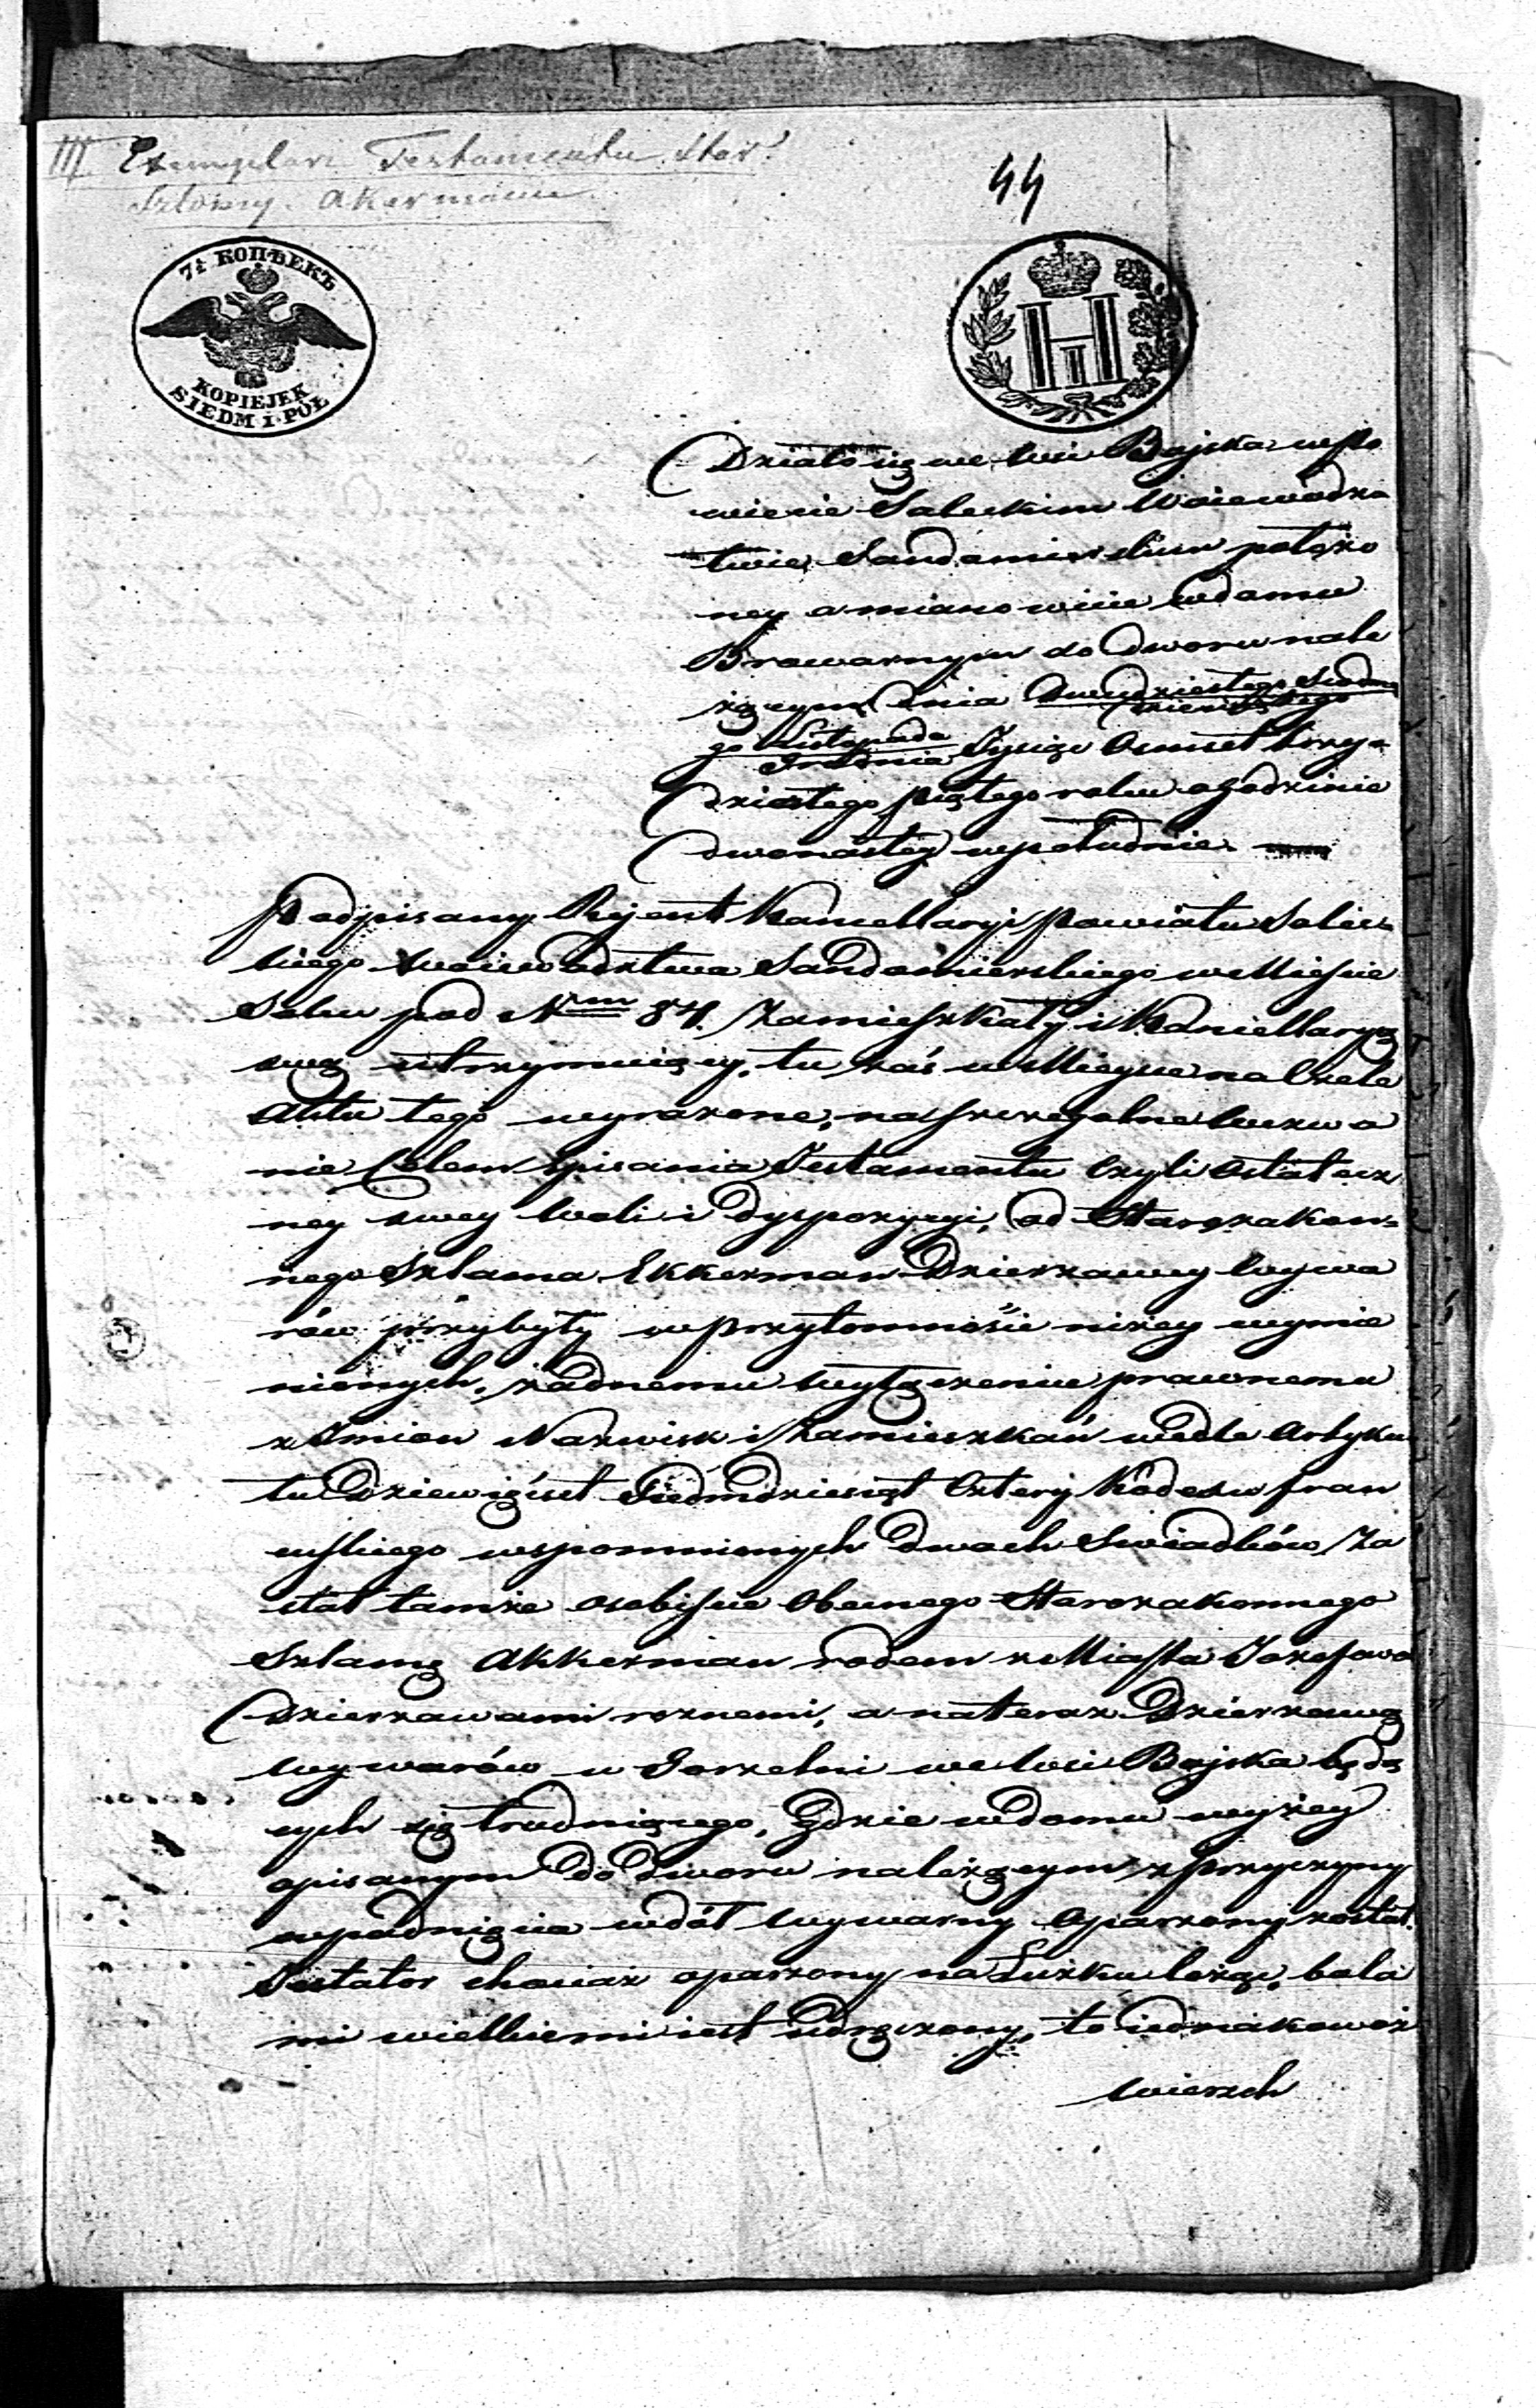 III Exemplarz Testamentu Star.
Szlamy Akermana
44
7½ КОПѢЕКЪ
KOPIEJEK
SIEDM I PÓŁ
Działo się we Wsi Bajska w Po
wiecie Soleckim Woiewodz
twie Sandomierskim położo
ney a mianowicie w domu
Browarnym do Dworu nale
żącym dnia Dwudziestego Siódme
go Listopada
Grudnia Tysiąc Osmset trzy=
dziestego piątego roku o godzinie
dwunastey w południe
Podpisany Rejent Kancellaryi Powiatu Solec=
kiego Woiewodztwa Sandomierskiego w Mieście
Solcu pod Nrm 84. Zamieszkały i Kancellaryą
swą utrzymuiący, tu zaś w Mieysce na Czele
Aktu tego wyrażone, na szczegolne wezwa
nie Celem spisania Testamentu czyli Ostatecz
ney swey Woli i dyspozycyi, od Starozakon=
nego Szlama Ekkerman Dzierzawcy Wywa
rów przybyły w przytomności niżey wymie
nionych, żadnemu wyłączeniu prawnemu
z Imion Nazwisk i Zamieszkań wedle Artyku
łu Dziewięćset Siedmdziesiąt Cztery Kodexu fran
cuskiego wspomnionych dwoch Swiadków, Za
stał tamże osobiście Obecnego Starozakonnego
Szlamę Akkerman rodem z Miasta Jozefowa
dzierzawami roznemi, a na teraz Dzierzawą
Wywarów w Gorzelni we Wsi Bajska będą
cych się trudniącego, gdzie w domu wyżey
opisanym do dworu należącym z przyczyny
wpadnięcia w dół wywarny Oparzony został.
Testator chociaż oparzony na Łużku leżąc, bola
mi wielkiemi iest udręczony, to iednakoważ
wierzch